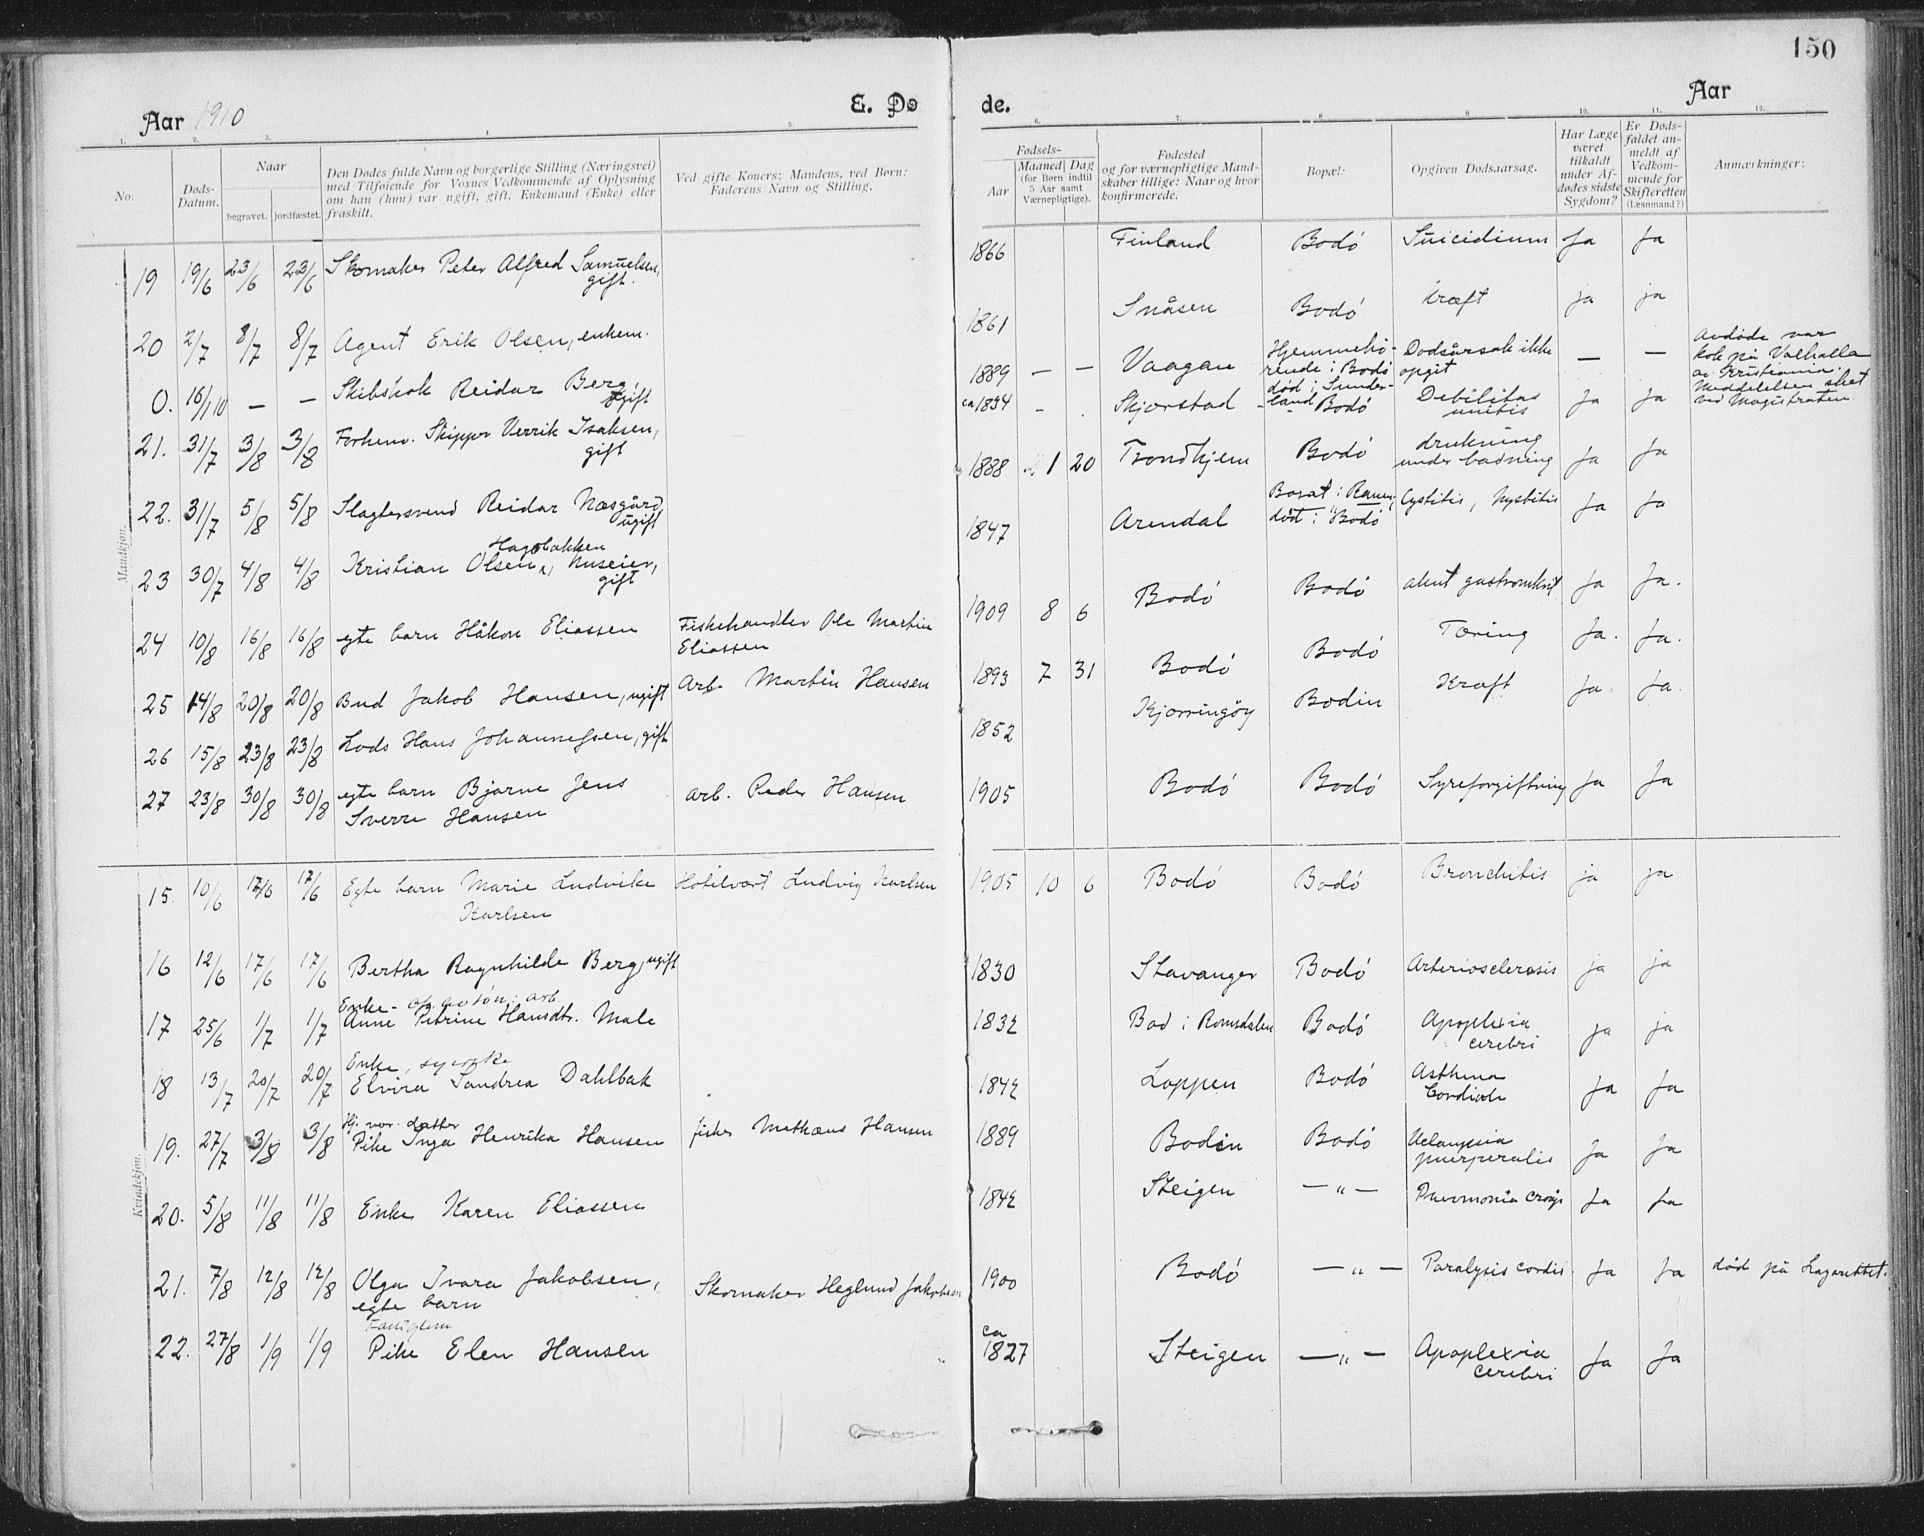 150
Aar 1910 E. Dø de. Aar
1. 2. 3. 4. 5. 6. 7. 8. 9. 10. 11. 12.
No.
Døds-
Datum.
Naar
begravet. jordfæstet.
Den Dødes fulde Navn og borgerlige Stilling (Næringsvei)
med Tilføiende for Voxnes Vedkommende af Oplysning
om han (hun) var ugift, gift, Enkemand (Enke) eller
fraskilt.
Ved gifte Koner: Mandens, ved Børn:
Faderens Navn og Stilling.
Fødsels-
Aar
Maaned Dag
(for Børn indtil
5 Aar samt
Værnepligtige).
Fødested
og for værnepligtige Mand-
skaber tillige: Naar og hvor
konfirmerede.
Bopæl:
Opgiven Dødsaarsag.
Har Læge
været
tilkaldt
under Af-
dødes sidste
Sygdom?
Er Døds-
faldet an-
meldt af
Vedkom-
mende for
Skifteretten
(Lensmand?)
Anmærkninger:
Mandkjøn.
19 19/6 23/6 23/6 Skomaker Peter Alfred Samuelsen, gift. 1866 Finland Bodó Suicidium Ja Ja
20 2/7 8/7 8/7 Agent Erik Olsen, enkem. 1861 Snåsen Bodó Kræft ja ja
0. 16/1 10 — — Skibskok Reidar Berg, ugift 1889 — — Vaagan Hjemmehö-
rende i Bodó
död i Sunder-
land
Dodsårsak ikke
opgit — —
Avdöde var
kok på Valhalla
av Kristiania.
Meddelelsen sket
ved Magistraten
21. 31/7 3/8 3/8 Forhenv. Skipper Verrik Isaksen, gift ca 1834 - Skjerstad - Bodó Debilitas
unitis Ja Ja
22. 31/7 5/8 5/8 Slagtersvend Reidar Næsgård, ugift 1888 1 20 Trondhjem Bodó drukning
under badning Ja Ja
23 30/7 4/8 4/8 Kristian Olsen Hagebakken, huseier, gift 1847 Arendal Bosat i Ranen,
död i Bodó Cystitis, Ja Ja
24 10/8 16/8 16/8 egte barn Håkon Eliassen Fiskehandler Ole Martin
Eliassen 1909 8 6 Bodó Bodó akut Ja Ja.
25 14/8 20/8 20/8 Bud Jakob Hansen, ugift Arb. Martin Hansen 1893 7 31 Bodó Bodó Tæring Ja. Ja.
26 15/8 23/8 23/8 Lods Hans Johannessen, gift 1852 Kjærringöy Bodin Kræft Ja. Ja.
27 23/8 30/8 30/8 egte barn Bjarne Jens
Sverre Hansen arb. Peder Hansen 1905 Bodó Bodó Syreforgiftning Ja Ja
Kvindekjøn.
15. 10/6 17/6 17/6 Egte barn Marie Ludvike
Karlsen Hotelvært Ludvig Karlsen 1905 10 6 Bodó Bodó Bronchitis ja ja
16 12/6 17/6 17/6 Bertha Ragnhilde Berg, ugift 1830 Stavanger Bodó Arteriosclerosis ja ja
17 25/6 1/7 1/7 Enke
Anne Petrine Hansdtr. Male 1832 Bod i Romsdalen Bodó Apoplexia
cerebri ja ja
18 13/7 20/7 20/7 Enke, syerske
Elvira Sandrea Dahlbak 1842 Loppen Bodó Asthma
Cordiale Ja Ja
19. 27/7 3/8 3/8 Hj. vær. datter
Pike Inga Henrika Hansen fisker Mathæus Hansen 1889 Bodin Bodó Eclampsia
puerperalis Ja Ja
20. 5/8 11/8 11/8 Enke Karen Eliassen 1842 Steigen — " — Pneumonia Ja Ja
21. 7/8 12/8 12/8 Olga Ivara Jakobsen,
egte barn Skomaker Heglund Jakobsen 1900 Bodó — " — Paralysis cordis. Ja Ja död på Lazarettet.
22. 27/8 1/9 1/9 Fattiglem
Pike Elen Hansen ca
1827 Steigen — " — Apoplexia
cerebri Ja Ja